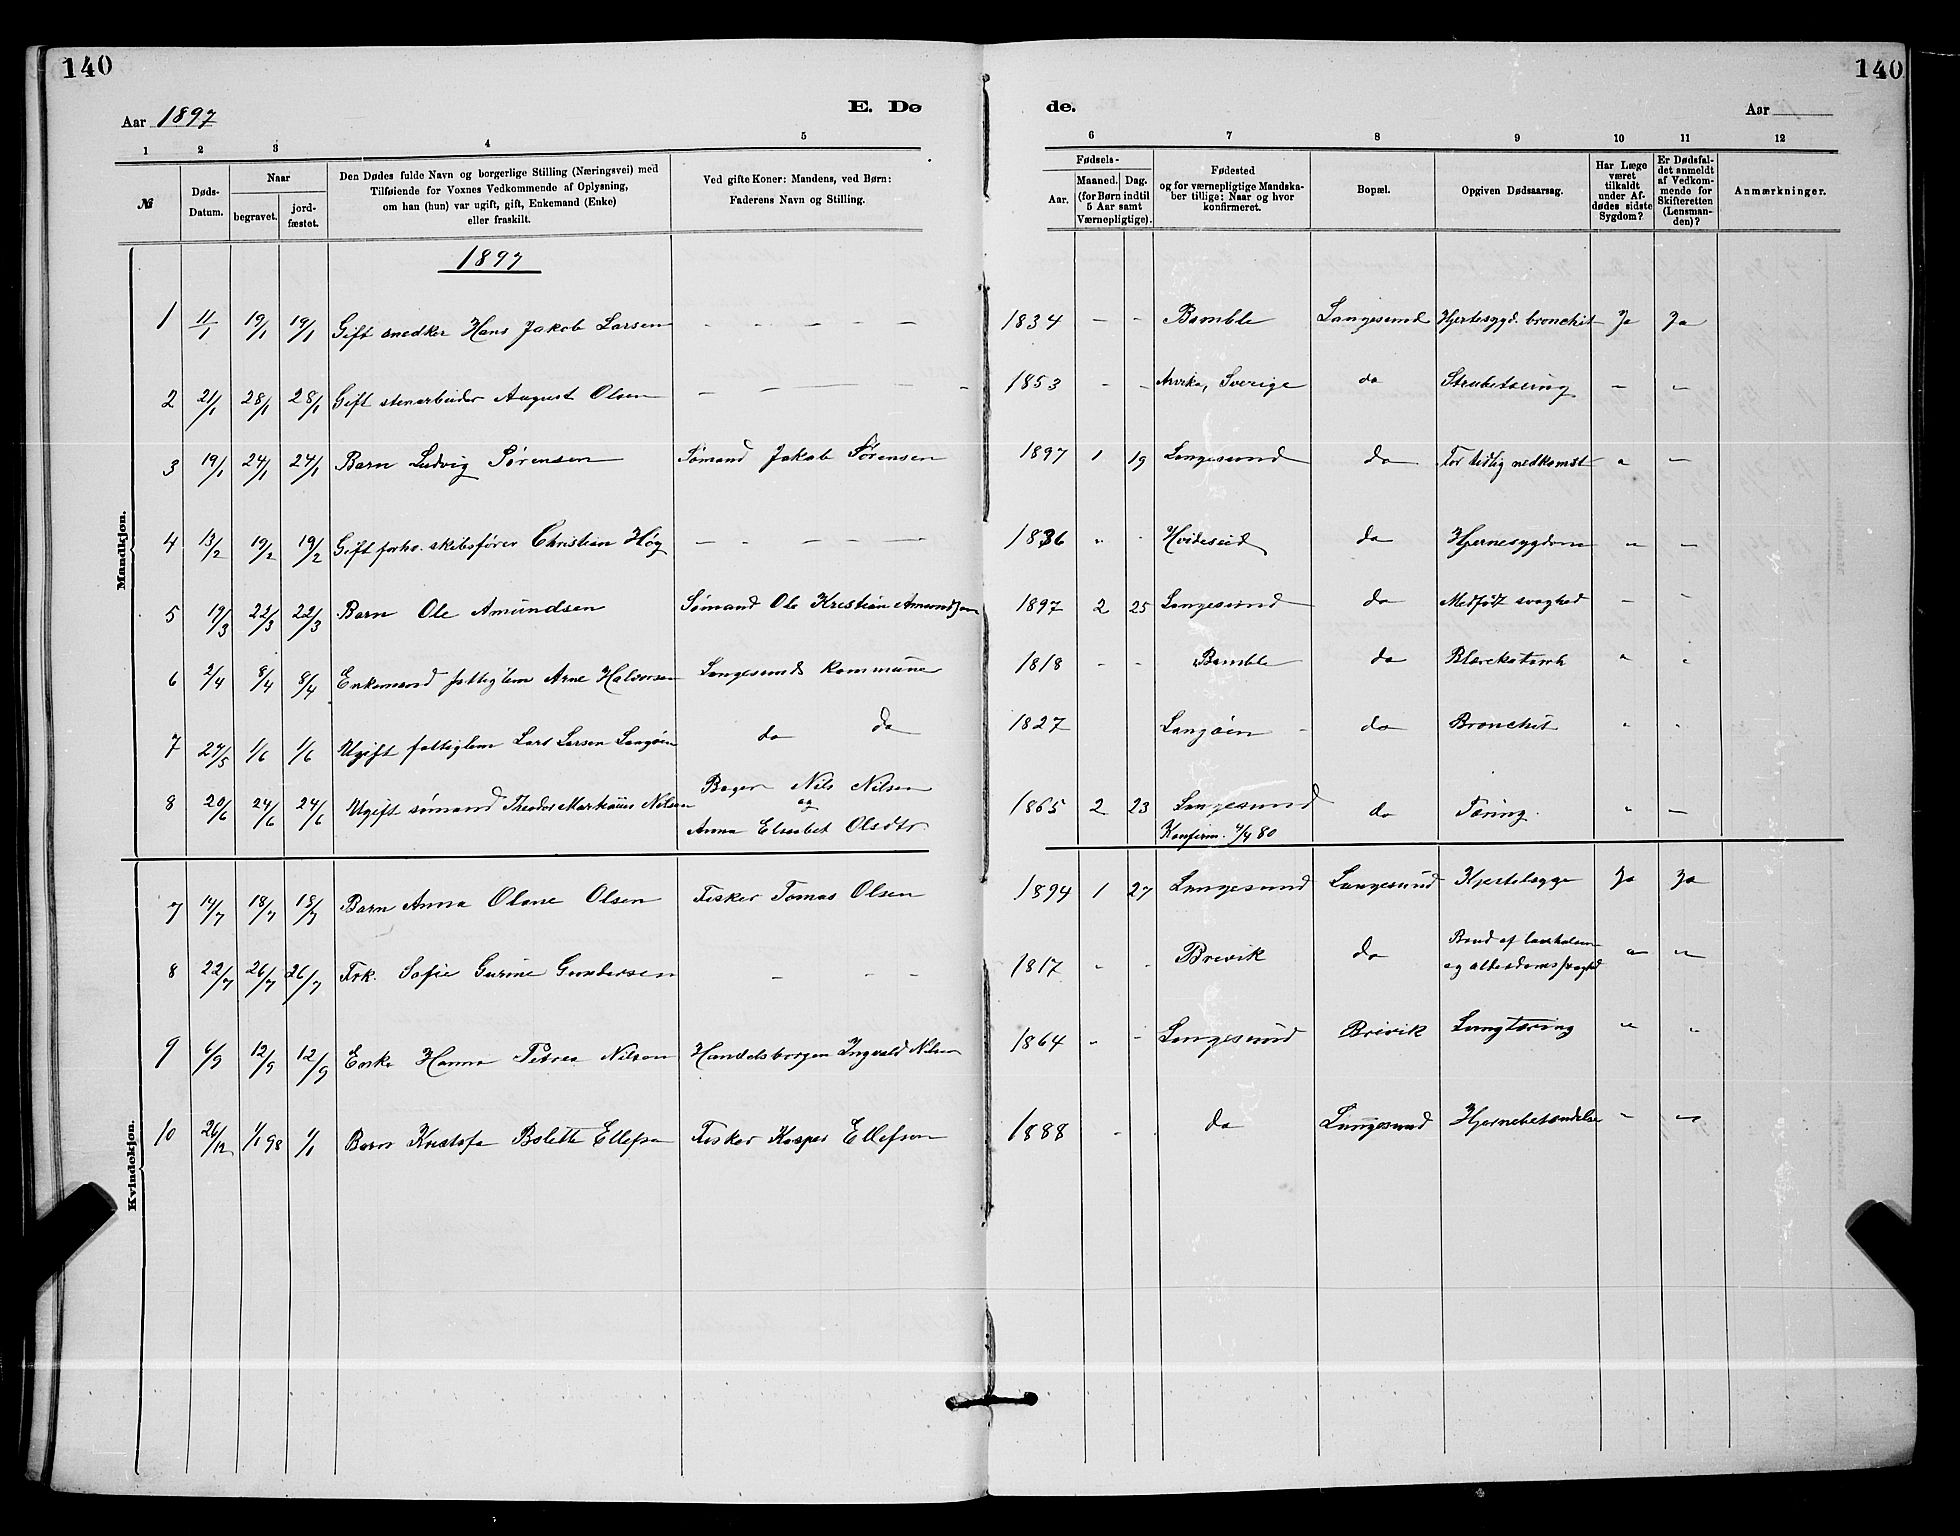 140
140
Aar 1897
E. Dø
de.
Aar
1 2 3 4 5
6 7 8 9 10 11 12
№
Døds-
Datum.
Naar
begravet.
jord-
fæstet.
Den Dødes fulde Navn og borgerlige Stilling (Næringsvei) med
Tilføiende for Voxnes Vedkommende af Oplysning,
om han (hun) var ugift, gift, Enkemand (Enke)
eller fraskilt.
Ved gifte Koner: Mandens, ved Børn:
Faderens Navn og Stilling.
Fødsels-
Aar.
Maaned. Dag.
(for Børn indtil
5 Aar samt
Værnepligtige).
Fødested
og for værnepligtige Mandska-
ber tillige: Naar og hvor
konfirmeret.
Bopæl.
Opgiven Dødsaarsag.
Har Læge
været
tilkaldt
under Af-
dødes sidste
Sygdom?
Er Dødsfal-
det anmeldt
af Vedkom-
mende for
Skifteretten
(Lensman-
den)?
Anmærkninger.
Mandkjøn.
1897
1 11/1 19/1 19/1 Gift snedker Hans Jakob Larsen - - - - - 1834 - - Bamble Langesund Hjertesygd. bronchit Ja Ja
2 21/1 28/1 28/1 Gift stenarbeider August Olsen - - - - - 1853 - - Arvika, Sverige do Strubetæring - "
3 19/1 24/1 24/1 Barn Ludvig Sørensen Sømand Jakob Sørensen 1897 1 19 Langesund do For tidlig nedkomst " -
4 13/2 19/2 19/2 Gift forhv. skibsfører Christian Høg - - - - - 1836 " . Hvideseid do Hjernesygdom " -
5 19/3 22/3 22/3 Barn Ole Amundsen Sømand Ole Kristian Amundsen 1897 2 25 Langesund do Medfødt svaghed - -
6 2/4 8/4 8/4 Enkemand fattiglem Arne Halvorsen Langesunds kommune 1818 - - Bamble do Blærekatarrh " "
7 27/5 1/6 1/6 Ugift fattiglem Lars Larsen Langøen do do 1827 Langøen - do Bronchit " "
8 20/6 24/6 24/6 Ugift sømand Theodor Markuus Nilsen Bager Nils Nilsen
og
Anna Elisabet Olsdtr. 1865 2 23 Langesund do Tæring. " -
Konfirm. 4/4 80
Kvindekjøn.
7 14/7 18/7 18/7 Barn Anna Olane Olsen Fisker Tomas Olsen 1894 1 27 Langesund Langesund Kjertelsyge Ja Ja
8 22/7 26/7 26/7 Frk. Sofie Gurine Gundersen - - - 1817 " - Brevik do Brud af laarhalsen
og alderdomssvaghed " "
9 6/9 12/9 12/9 Enke Hanna Petrea Nilsen Handelsborger Ingvald Nilsen 1864 " - Langesund Brevik Lungtæring " "
10 26/12 1/1 98 1/1 Barn Kristofa Bolette Ellefsen Fisker Kasper Ellefsen 1888 - . do Langesund Hjernebetændelse " "